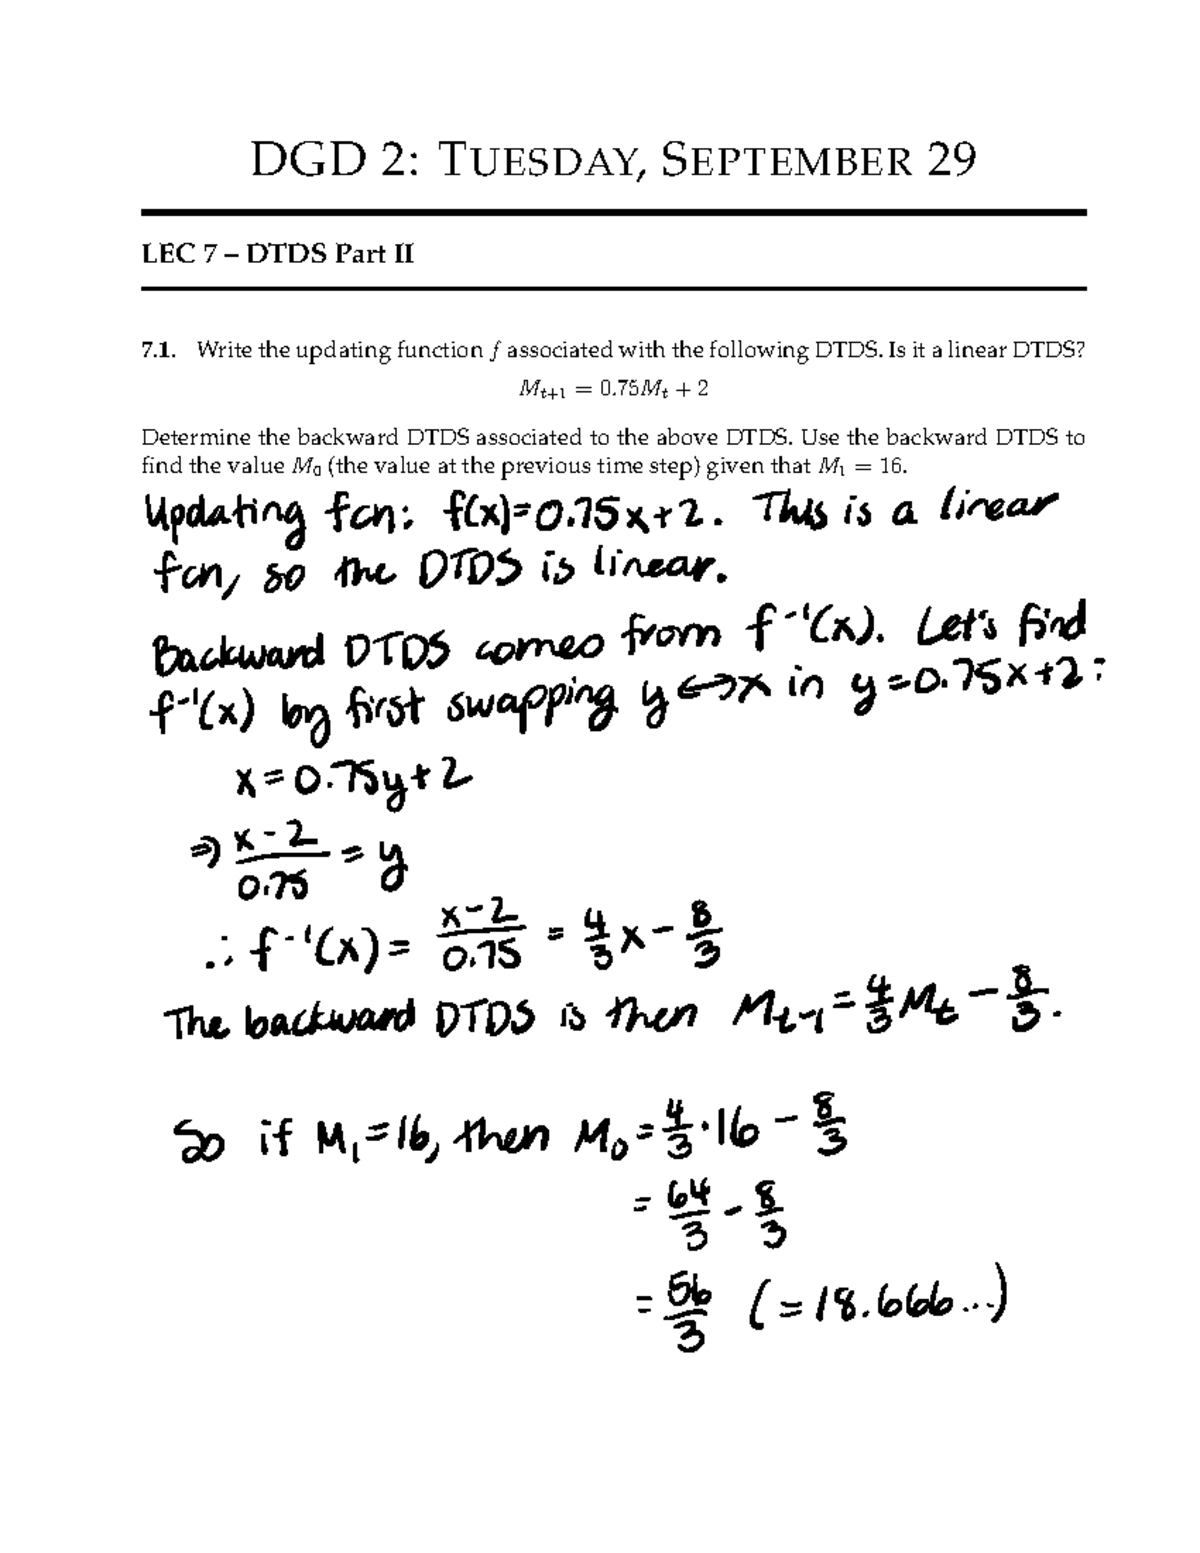 DGD 2: TUESDAY, SEPTEMBER 29
LEC 7 – DTDS Part II
7.1. Write the updating function f associated with the following DTDS. Is it a linear DTDS?
M_{t+1} = 0.75M_t + 2
Determine the backward DTDS associated to the above DTDS. Use the backward DTDS to
find the value M_0 (the value at the previous time step) given that M_1 = 16.
Updating fcn: f(x)=0.75x+2. This is a linear
fcn, so the DTDS is linear.
Backward DTDS comes from f⁻¹(x). Let's find
f⁻¹(x) by first swapping y↔x in y=0.75x+2:
x=0.75y+2
⇒ (x-2)/0.75 = y
∴ f⁻¹(x) = (x-2)/0.75 = 4/3 x - 8/3
The backward DTDS is then M_{t-1} = 4/3 M_t - 8/3.
So if M_1=16, then M_0 = 4/3 · 16 - 8/3
= 64/3 - 8/3
= 56/3 (=18.666...)